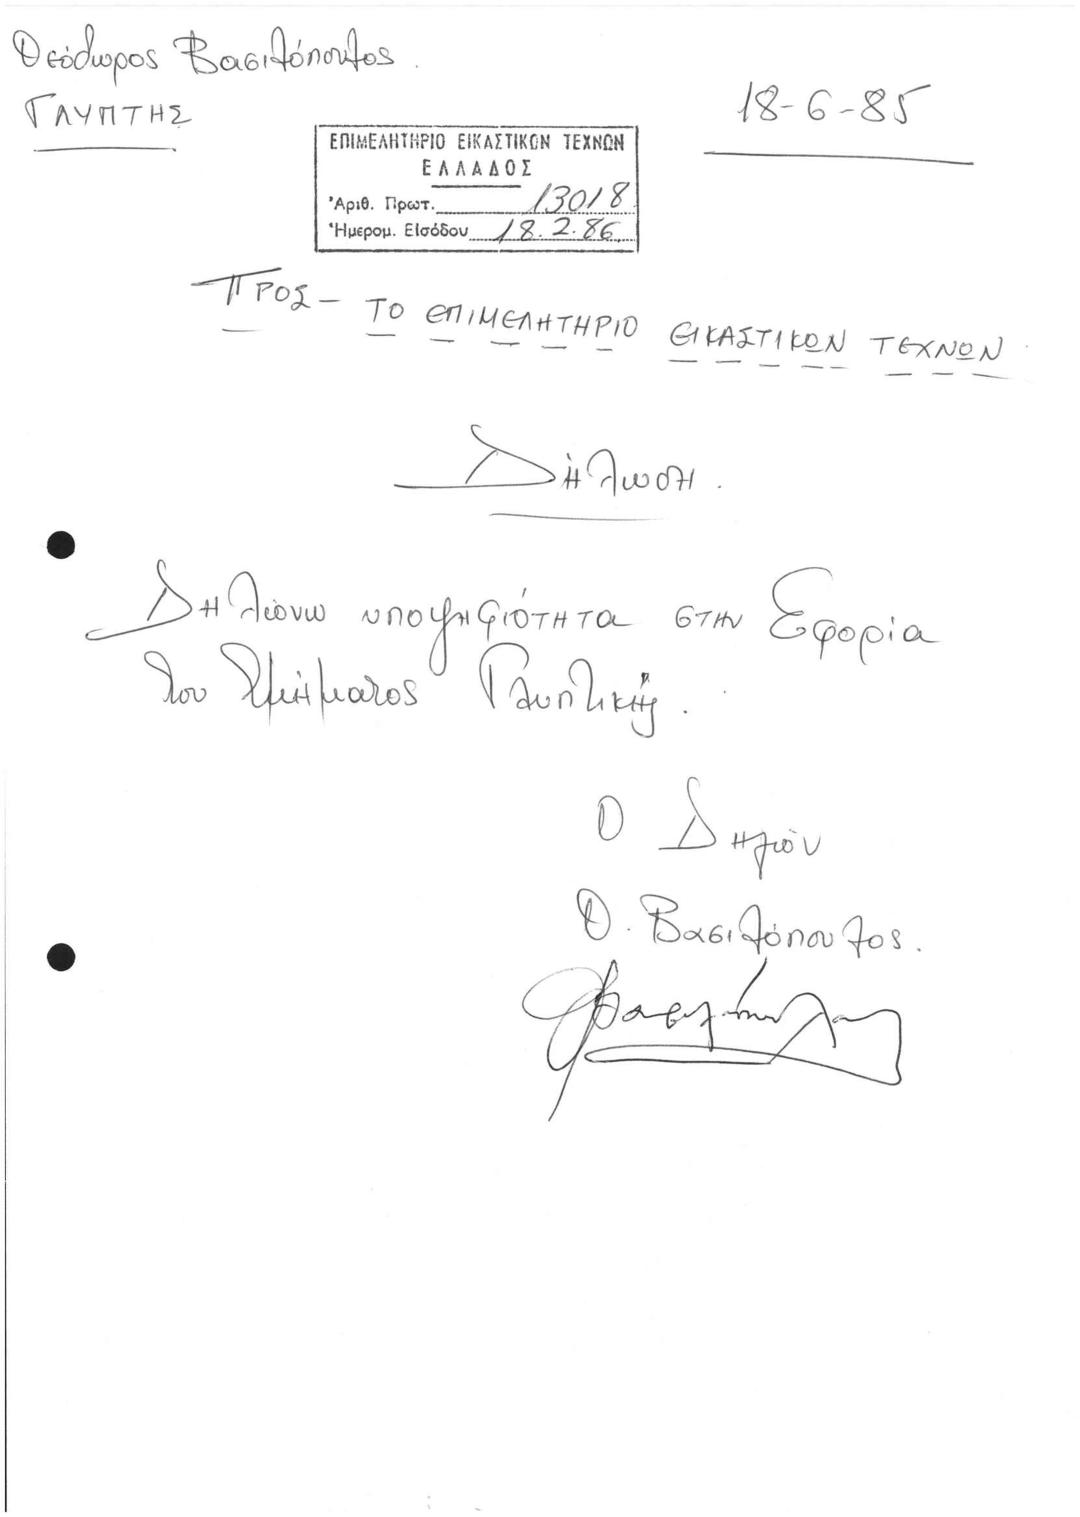 Θεόδωρος Βασιλόπουλος.
ΓΛΥΠΤΗΣ
18-6-85
ΕΠΙΜΕΛΗΤΗΡΙΟ ΕΙΚΑΣΤΙΚΩΝ ΤΕΧΝΩΝ
ΕΛΛΑΔΟΣ
Ἀριθ. Πρωτ. 13018
Ἡμερομ. Εἰσόδου 18.2.86
ΠΡΟΣ - ΤΟ ΕΠΙΜΕΛΗΤΗΡΙΟ ΕΙΚΑΣΤΙΚΩΝ ΤΕΧΝΩΝ
Δήλωση.
Δηλώνω υποψηφιότητα στην Εφορία
του Τμήματος Γλυπτικής.
Ο Δηλών
Θ. Βασιλόπουλος.